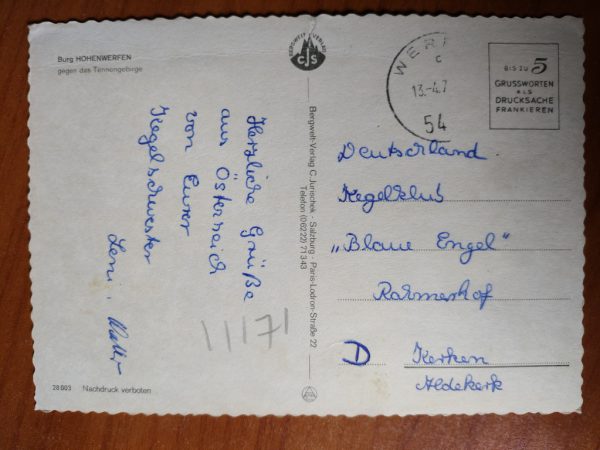 Burg HOHENWERFEN
gegen das Tennengebirge
Herzliche Grüße
aus Österreich
von Eurer
Kegelschwester
Leni,
28 803 Nachdruck verboten
BERGWELT VERLAG
CJS
Bergwelt-Verlag C. Jurischek · Salzburg · Paris-Lodron-Straße 22
Telefon (06222) 71343
WERF
c
13.-4.7
54
BIS ZU 5
GRUSSWORTEN
ALS
DRUCKSACHE
FRANKIEREN
Deutschland
Kegelklub
„Blaue Engel"
Rahmerhof
D Kerken
Aldekerk
11171